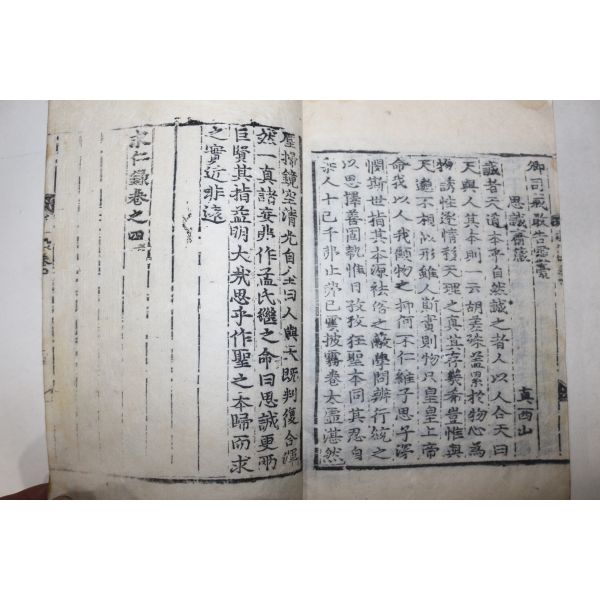 思誠齋箴 真西山
誠者天道本乎自然誠之者人以人合天曰
天與人其本則一云胡差殊蓋累於物心為
物誘性逐情移天理之真其存幾希豈惟與
天邈不相似形雖人斯實則物只皇皇上帝
命我以人我顧物之抑何不仁維子思子深
憫斯世指其本源祛俗之蔽學問辨行統之
以思擇善固執惟日孜孜狂聖本同其忍自
棄人十己千弗止弗已雲披霧卷太虛湛然
塵掃鏡空清光自全曰人與天既判復合渾
然一真諸妄弗作孟氏繼之命曰思誠更兩
巨賢其指益明大哉思乎作聖之本歸而求
之實近非遠
求仁錄卷之四